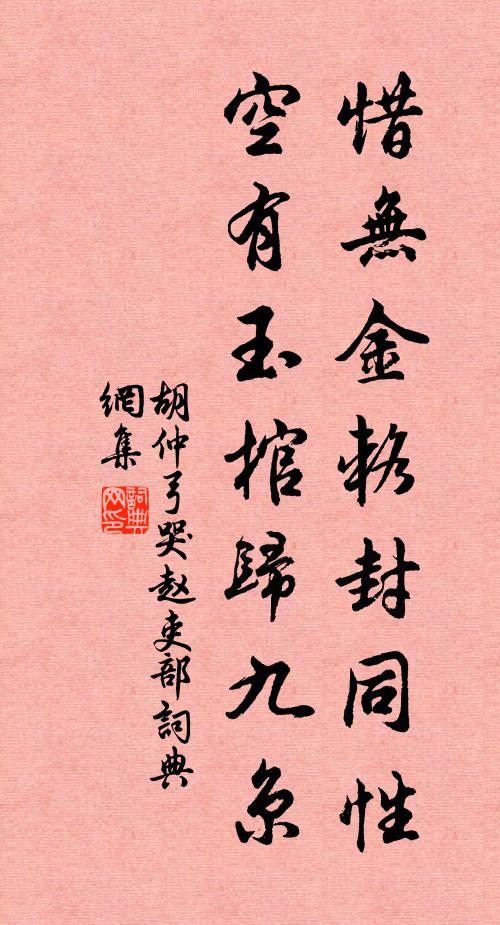 惜無金輅封同性
空有玉棺歸九京
胡仲弓哭赵吏部詞典
網集
詞典
网印